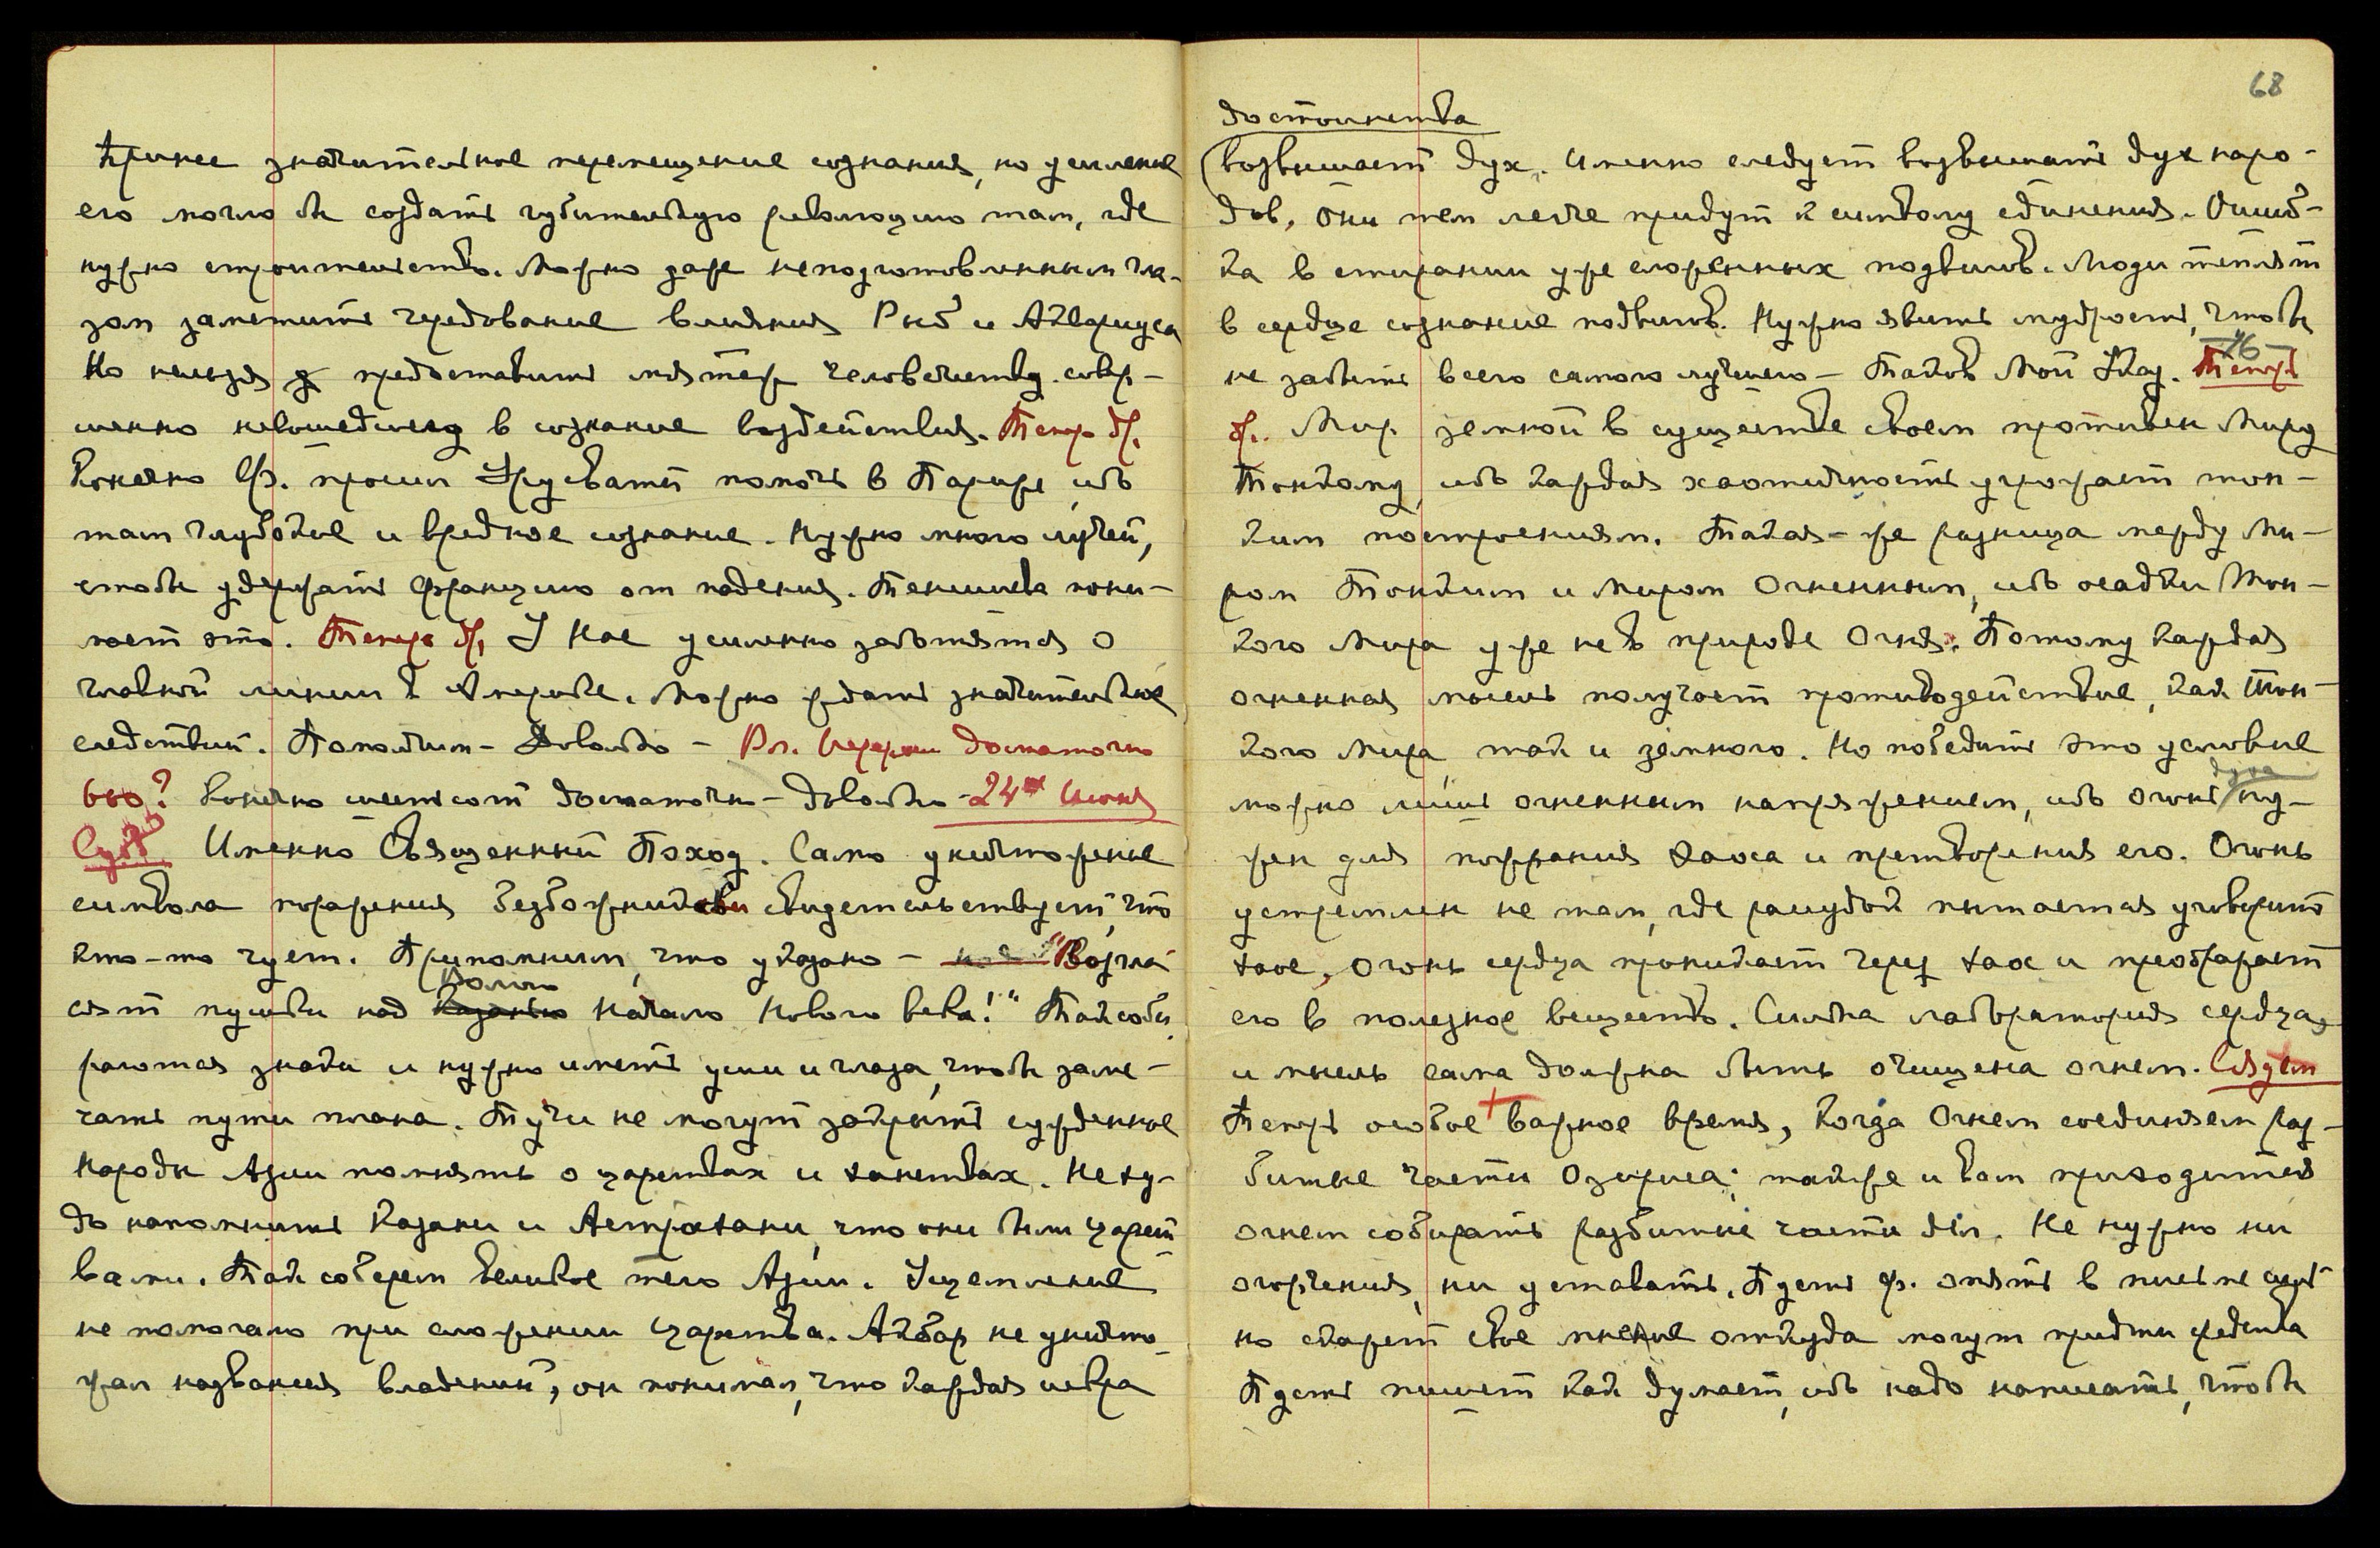 принес значительное перемещение сознания, но усиление
его могло бы создать губительную революцию там, где
нужно строительство. Можно даже неподготовленным гла-
зам заметить чередование влияния Рыб и Аквариуса
Но нельзя предоставить мятеж человечеству совер-
шенно невошедшему в сознание воздействия. Теперь др.
Конечно Ф. просил Урусвати помочь в Париже, ибо
там глубокое и вредное сознание. Нужно много лучей,
чтобы удержать Францию от падения. Тенишева пони-
мает это. Теперь др. У Нас усиленно заботятся о
главной линии в Америке. Можно ждать значительных
следствий. Помолчим – Довольно – достаточно
600? Конечно шестьсот достаточно – довольно – 24е Июня
Именно Священный Поход. Само уничтожение
символа поражения безбожниками свидетельствует, что
кто-то чует. Припомним, что указано – "Возгла-
сят пушки над Волгою Начало Нового века!" Так соби-
раются знаки и нужно иметь уши и глаза, чтобы заме-
чать пути плана. Тучи не могут закрыть сужденное
Народы Азии помнят о царствах и ханствах. Не ху-
до напомнить Казани и Астрахани, что они были царст-
вами. Так соберем великое тело Азии. Ущемление
не помогало при сложении царства. Акбар не уничто-
жал названия владений, он понимал, что каждая искра
68
достоинства
возвышает дух. Именно следует возвышать дух наро-
дов, они тем легче придут к символу единения. Ошиб-
ка в стирании уже сложенных подвигов. Люди теплят
в сердце сознание подвигов. Нужно явить мудрость, чтобы
не забыть всего самого лучшего – Таков Мой Указ. Теперь
др. Мир земной в существе своем противен Миру
Тонкому, ибо каждая хаотичность угрожает тон-
ким построениям. Такая-же разница между Ми-
ром Тонким и Миром Огненным, ибо осадки Тон-
кого Мира уже не в природе Огня. Потому каждая
огненная мысль получает противодействие, как Тон-
кого Мира, так и земного. Но победить это условие
можно лишь огненным напряжением, ибо огонь духа ну-
жен для пожрания Хаоса и претворения его. Огонь
устремлен не там, где рассудок пытается уговорить
хаос, огонь сердца проникает через хаос и преображает
его в полезное вещество. Сильна лаборатория сердца,
и мысль сама должна быть очищена огнем.
Теперь особое важное время, когда Огнем соединяем раз-
битые части Озириса; также и вам приходится
огнем собирать разбитые части дел. Не нужно ни
огорчения, ни уставать. Пусть Ф. опять в письме
но скажет свое мнение откуда могут придти средства
Пусть пишет как думает, ибо надо написать, чтобы